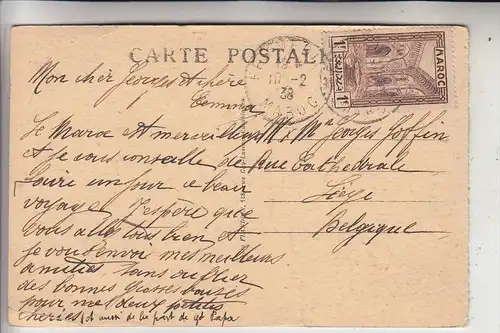 CARTE POSTALE
Mon cher Georges et père
Emma
Le Maroc est merveilleux
et je vous conseille de
faire un jour ce beau
voyage J'espère que
vous allez tous bien et
je vous envoi mes meilleurs
amitiés sans oublier
des bonnes grosses baisés
pour mel deux petites
cheries, et aussi de la part de Papa
Mr & Me Georges Joffin
Rue Cathédrale
Liège
Belgique
10-2
38
MAROC
1F 1F
MAROC